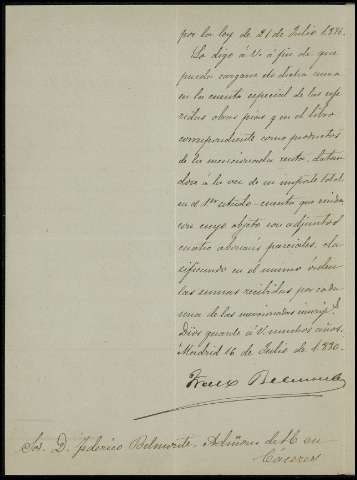 por la ley de 21 de Julio 1876.
Lo digo á V. á fin de que
pueda cargarse de dicha suma
en la cuenta especial de las refe
ridas obras pias y en el libro
correspondiente como productos
de la mencionada renta, datan
dose á la vez de su importe total
en el 1er estado-cuenta que rinda
con cuyo objeto son adjuntos
cuatro abonarés parciales, cla
sificando en el mismo órden
las sumas recibidas por cada
una de las mencionadas inscrips.
Dios guarde á V. muchos años.
Madrid 16 de Julio de 1880.
Belmonte
Sor. D. Federico Belmonte. Admor. de en
Cáceres